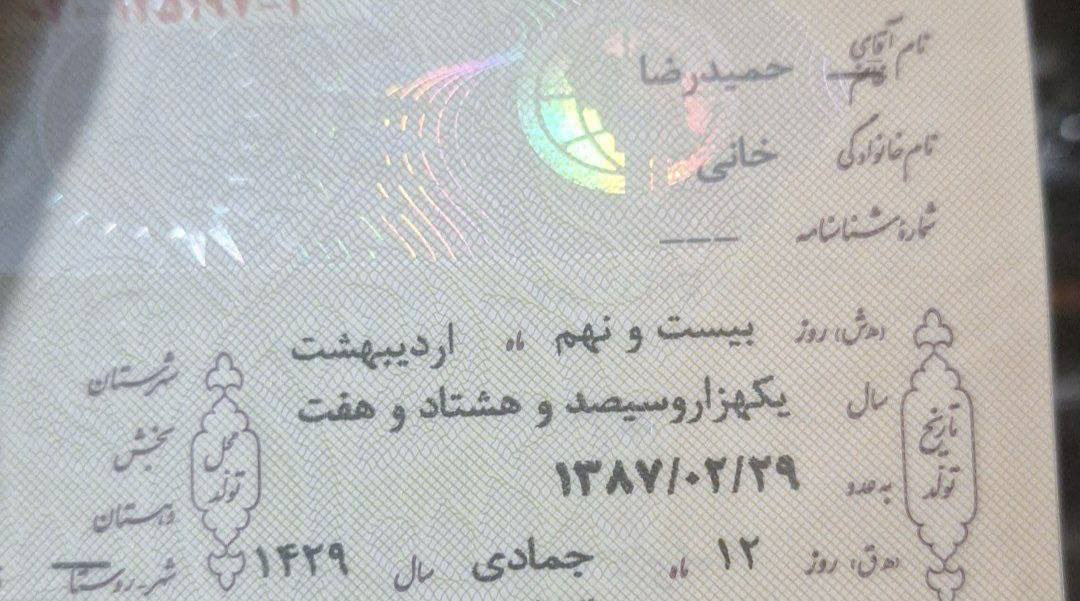 نام آقای خانم حمیدرضا
نام خانوادگی خانی
شمارهٔ شناسنامه ـــــ
تاریخ تولد
(هـ.ش) روز بیست و نهم ماه اردیبهشت
سال یکهزاروسیصد و هشتاد و هفت
به عدد ۱۳۸۷/۰۲/۲۹
(هـ.ق) روز ۱۲ ماه جمادی سال ۱۴۲۹
محل تولد
شهرستان
بخش
دهستان
شهر-روستا